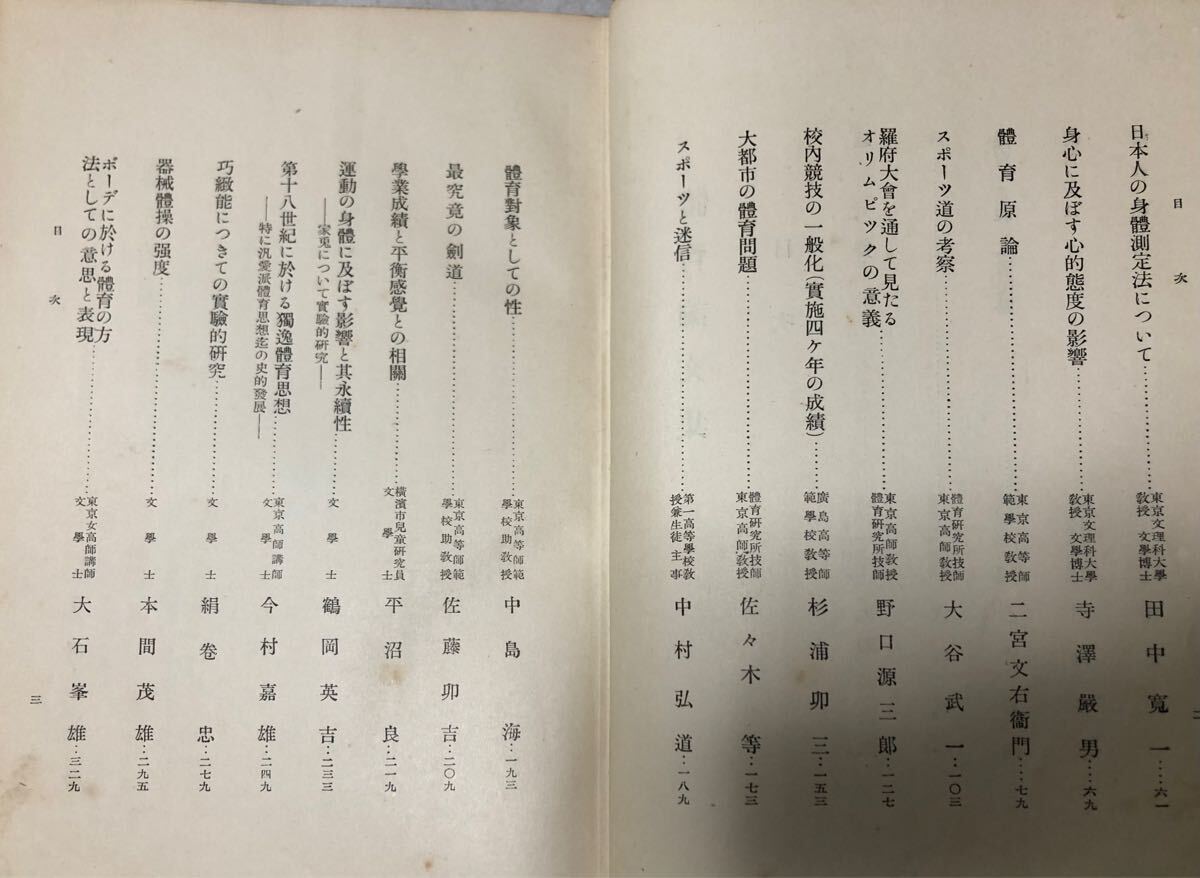 目次
日本人の身體測定法について……………東京文理科大學
教授 文學博士 田中寛一……六一
身心に及ぼす心的態度の影響……………東京文理科大學
教授 文學博士 寺澤嚴男……六九
體育原論……………東京高等師
範學校教授 二宮文右衞門……七九
スポーツ道の考察……………體育硏究所技師
東京高師教授 大谷武一…一〇三
羅府大會を通して見たる
オリムピツクの意義……………東京高師教授
體育硏究所技師 野口源三郎…一二七
校內競技の一般化(實施四ケ年の成績)……………廣島高等師
範學校教授 杉浦卯三…一五三
大都市の體育問題……………體育硏究所技師
東京高師教授 佐々木等…一七三
スポーツと迷信……………第一高等學校教
授兼生徒主事 中村弘道…一八九
二
體育對象としての性……………東京高等師範
學校助教授 中島海…一九三
最究竟の劍道……………東京高等師範
學校助教授 佐藤卯吉…二〇九
學業成績と平衡感覺との相關……………橫濱市兒童硏究員
文學士 平沼良…二一九
運動の身體に及ぼす影響と其永續性
――家兎について實驗的硏究――……………文學士 鶴岡英吉…二三三
第十八世紀に於ける獨逸體育思想
――特に汎愛派體育思想迄の史的發展――……………東京高師講師
文學士 今村嘉雄…二四九
巧緻能につきての實驗的硏究……………文學士 絹卷忠…二七九
器械體操の强度……………文學士 本間茂雄…二九五
ボーデに於ける體育の方
法としての意思と表現……………東京女高師講師
文學士 大石峯雄…三二九
目次
三